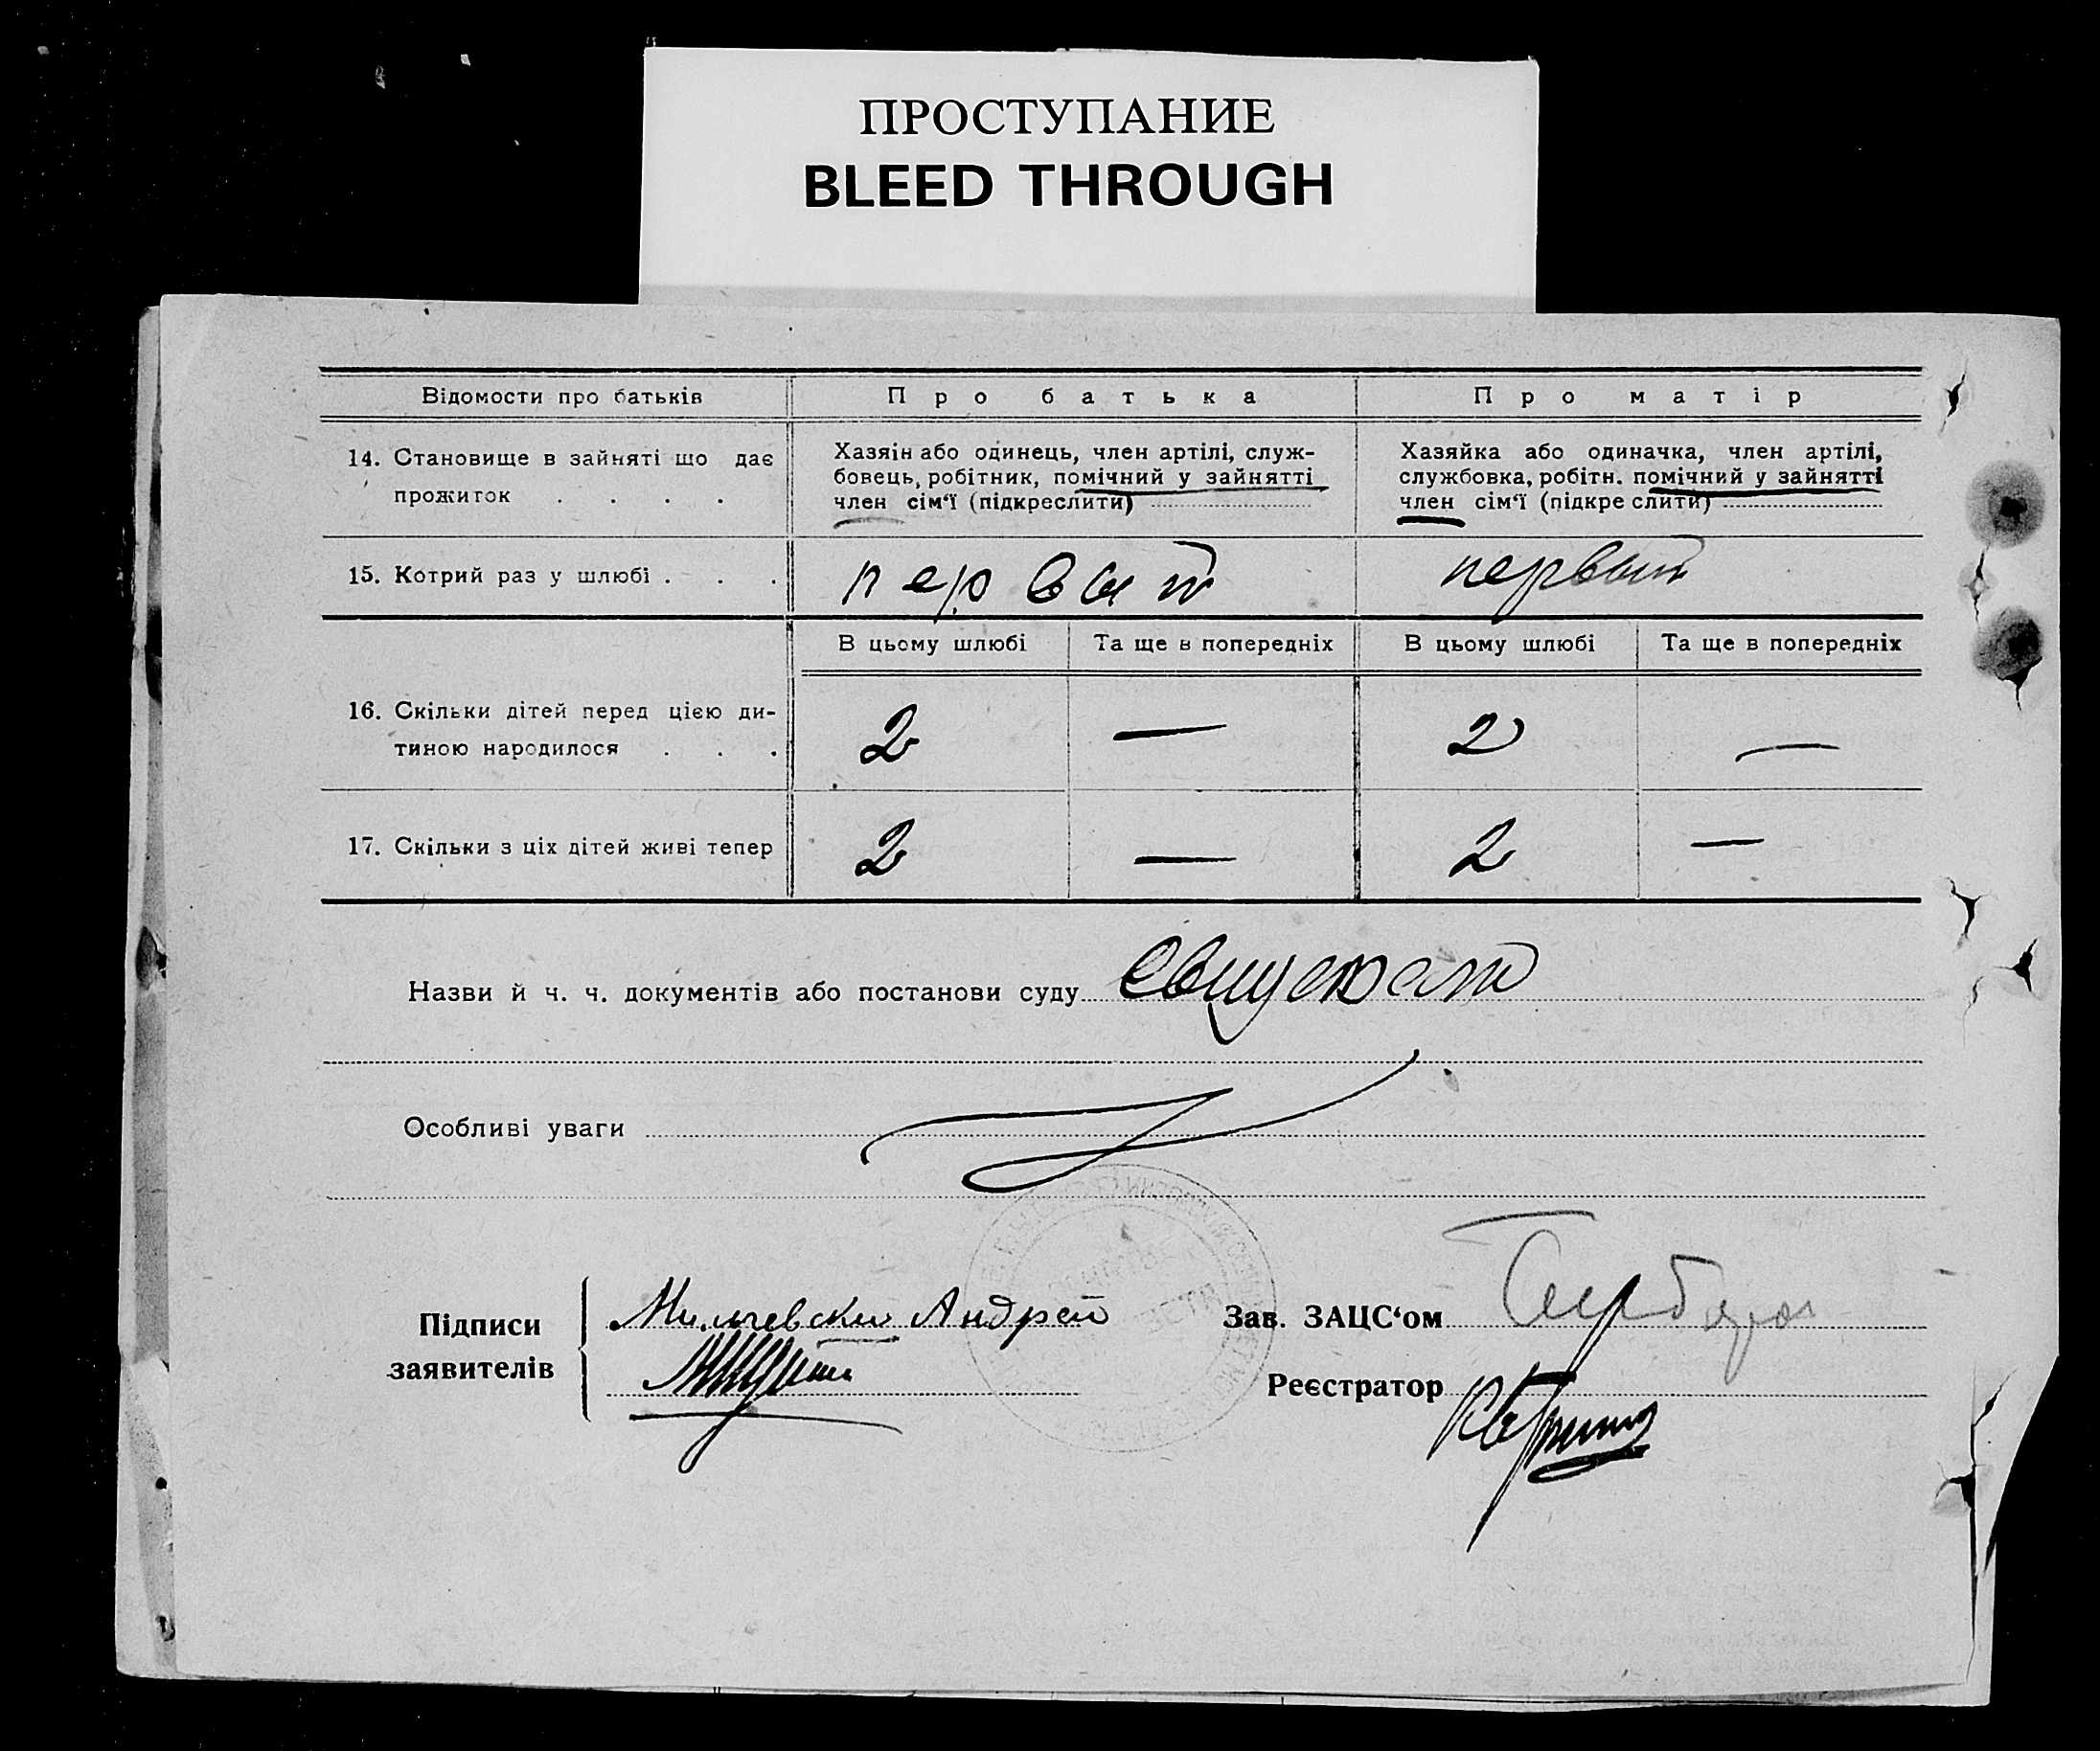 ПРОСТУПАНИЕ
BLEED THROUGH
Відомости про батьків
Про батька
Про матір
14. Становище в зайняті що дає
прожиток . . . .
Хазяїн або одинець, член артілі, служ-
бовець, робітник, помічний у зайнятті
член сім'ї (підкреслити)
Хазяйка або одиначка, член артілі,
службовка, робітн. помічний у зайнятті
член сім'ї (підкреслити)
15. Котрий раз у шлюбі . . .
первый
первый
В цьому шлюбі
Та ще в попередніх
В цьому шлюбі
Та ще в попередніх
16. Скільки дітей перед цією ди-
тиною народилося . . .
2 — 2 —
17. Скільки з ціх дітей живі тепер
2 — 2 —
Назви й ч. ч. документів або постанови суду
Особливі уваги
Підписи
заявителів
Андрей
Зав. ЗАЦС'ом
Реєстратор